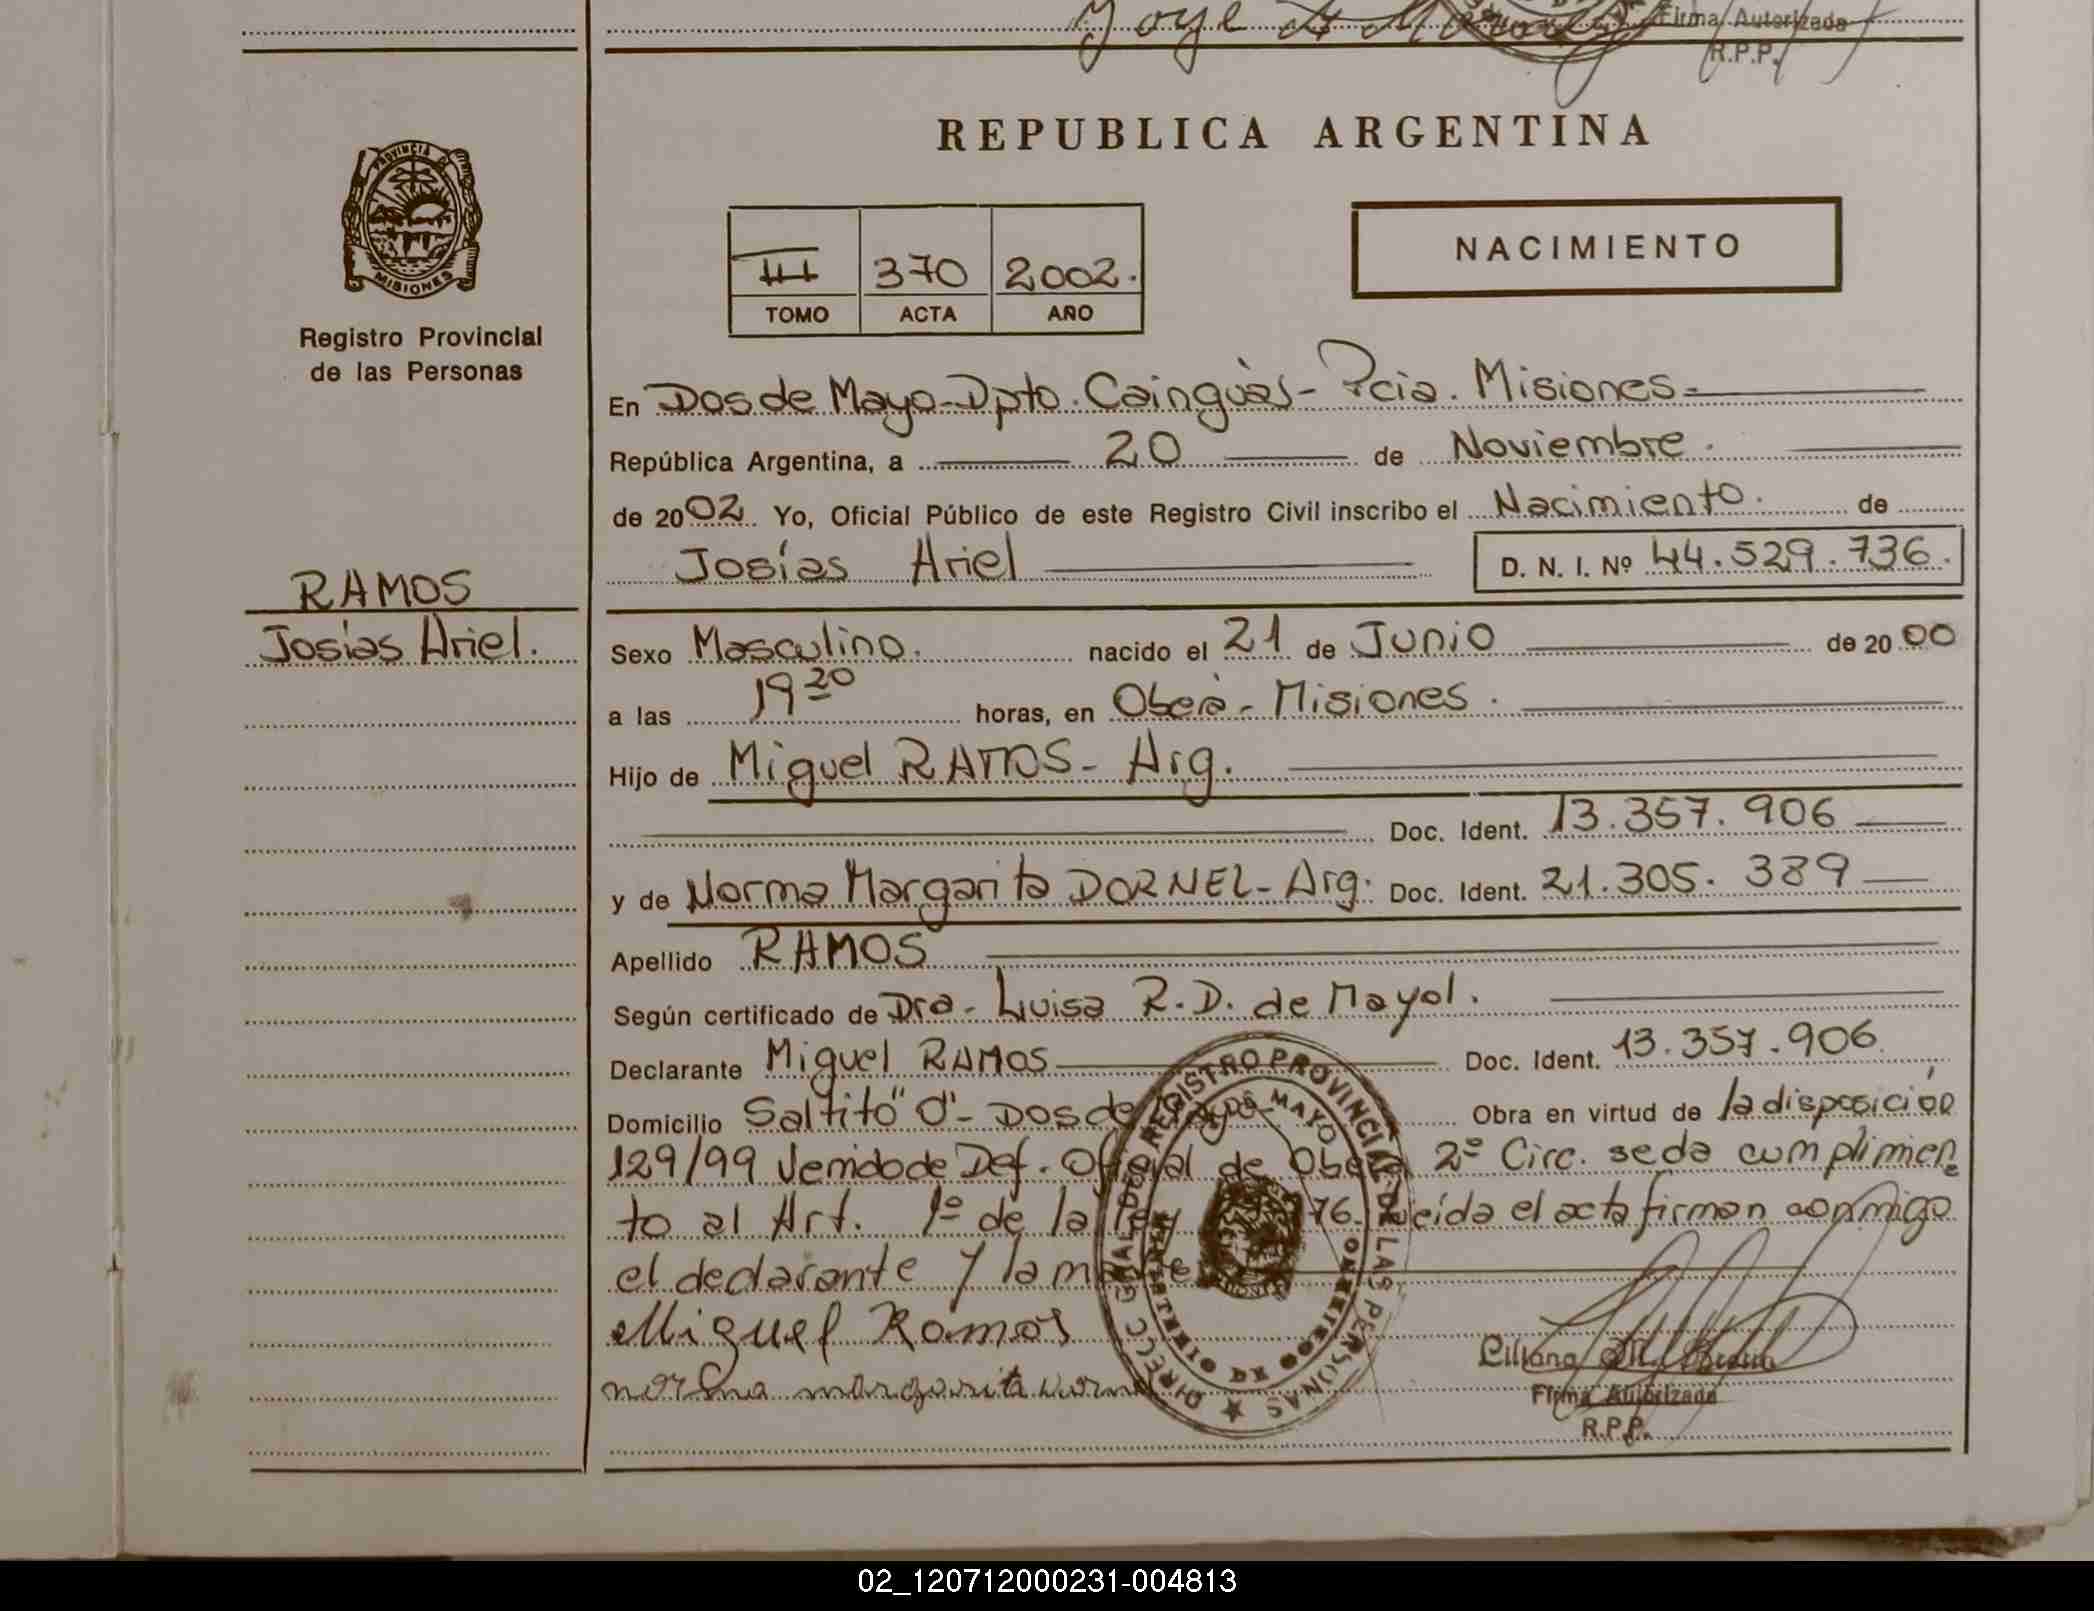 Firma Autorizada
R.P.P.
PROVINCIA DE
MISIONES
Registro Provincial
de las Personas
REPUBLICA ARGENTINA
III 370 2002.
TOMO ACTA AÑO
NACIMIENTO
En Dos de Mayo - Dpto. Cainguàs - Pcia. Misiones =
República Argentina, a 20 de Noviembre.
de 2002 Yo, Oficial Público de este Registro Civil inscribo el Nacimiento. de
Josías Ariel D. N. I. Nº 44.529.736.
RAMOS
Josías Ariel.
Sexo Masculino. nacido el 21 de Junio de 2000
a las 19 20 horas, en Oberà - Misiones.
Hijo de Miguel RAMOS - Arg.
Doc. Ident. 13.357.906
y de Norma Margarita DORNEL - Arg. Doc. Ident. 21.305.389
Apellido RAMOS
Según certificado de Dra - Luisa R. D. de Mayol.
Declarante Miguel RAMOS Doc. Ident. 13.357.906
Domicilio Saltito "0" - Dos de Mayo - Obra en virtud de la disposición
129/99 Venido de Def. Oficial de Oberà 2º Circ. se da cumplimien
to al Art. 1º de la Ley 76. Leída el acta firman conmigo
el declarante y la madre
Miguel Ramos
norma margarita
Firma Autorizada
R.P.P.
DIRECC. GRAL. DEL REGISTRO PROVINCIAL DE LAS PERSONAS
DOS DE MAYO
02_120712000231-004813